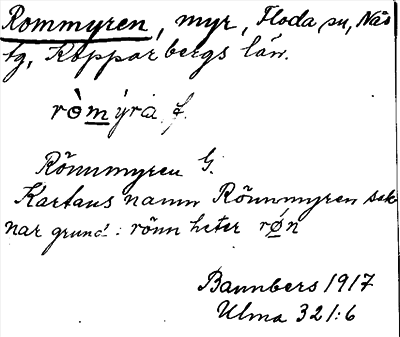 Rommyren, myr, Floda sn, Näs
tg, Kopparbergs län.
ròmýra f.
Rönnmyren G.
Kartans namn Rönnmyren sak-
nar grund: rönn heter røn
Bannbers 1917
Ulma 321:6